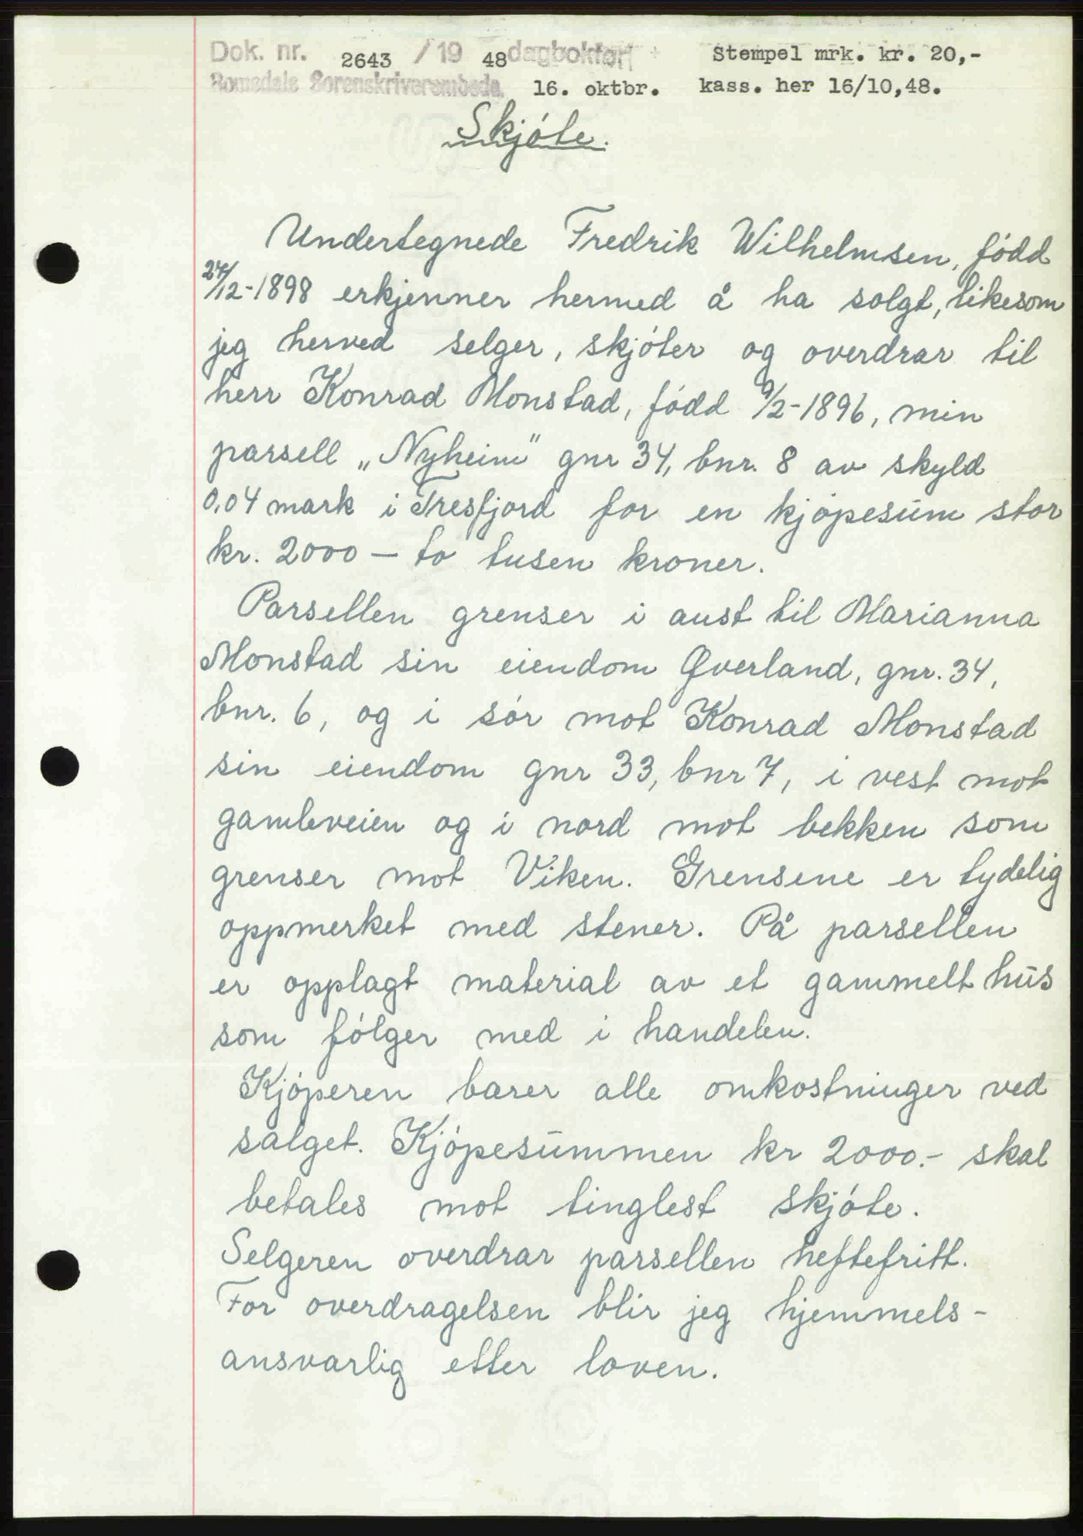 Dok. nr. 2643 /19 48 dagbokført Stempel mrk. kr. 20,-
Romsdals Sorenskriverembede. 16. oktbr. kass. her 16/10,48.
Skjóte.
Undertegnede Fredrik Wilhelmsen, född
24/12-1898 erkjenner hermed å ha solgt, likesom
jeg herved selger, skjóter og overdrar til
herr Konrad Monstad, född 9/2-1896, min
parsell „Nyheim" gnr 34, bnr. 8 av skyld
0,04 mark i Tresfjord for en kjópesum stor
kr. 2000 — to tusen kroner.
Parsellen grenser i aust til Marianna
Monstad sin eiendom Øverland, gnr. 34,
bnr. 6, og i sór mot Konrad Monstad
sin eiendom gnr 33, bnr 7, i vest mot
gamleveien og i nord mot bekken som
grenser mot Viken. Grensene er tydelig
oppmerket med stener. På parsellen
er opplagt material av et gammelt hus
som fólger med i handelen.
Kjóperen bærer alle omkostninger ved
salget. Kjópesummen kr 2000.- skal
betales mot tinglest skjóte.
Selgeren overdrar parsellen heftefritt.
For overdragelsen blir jeg hjemmels-
ansvarlig etter loven.